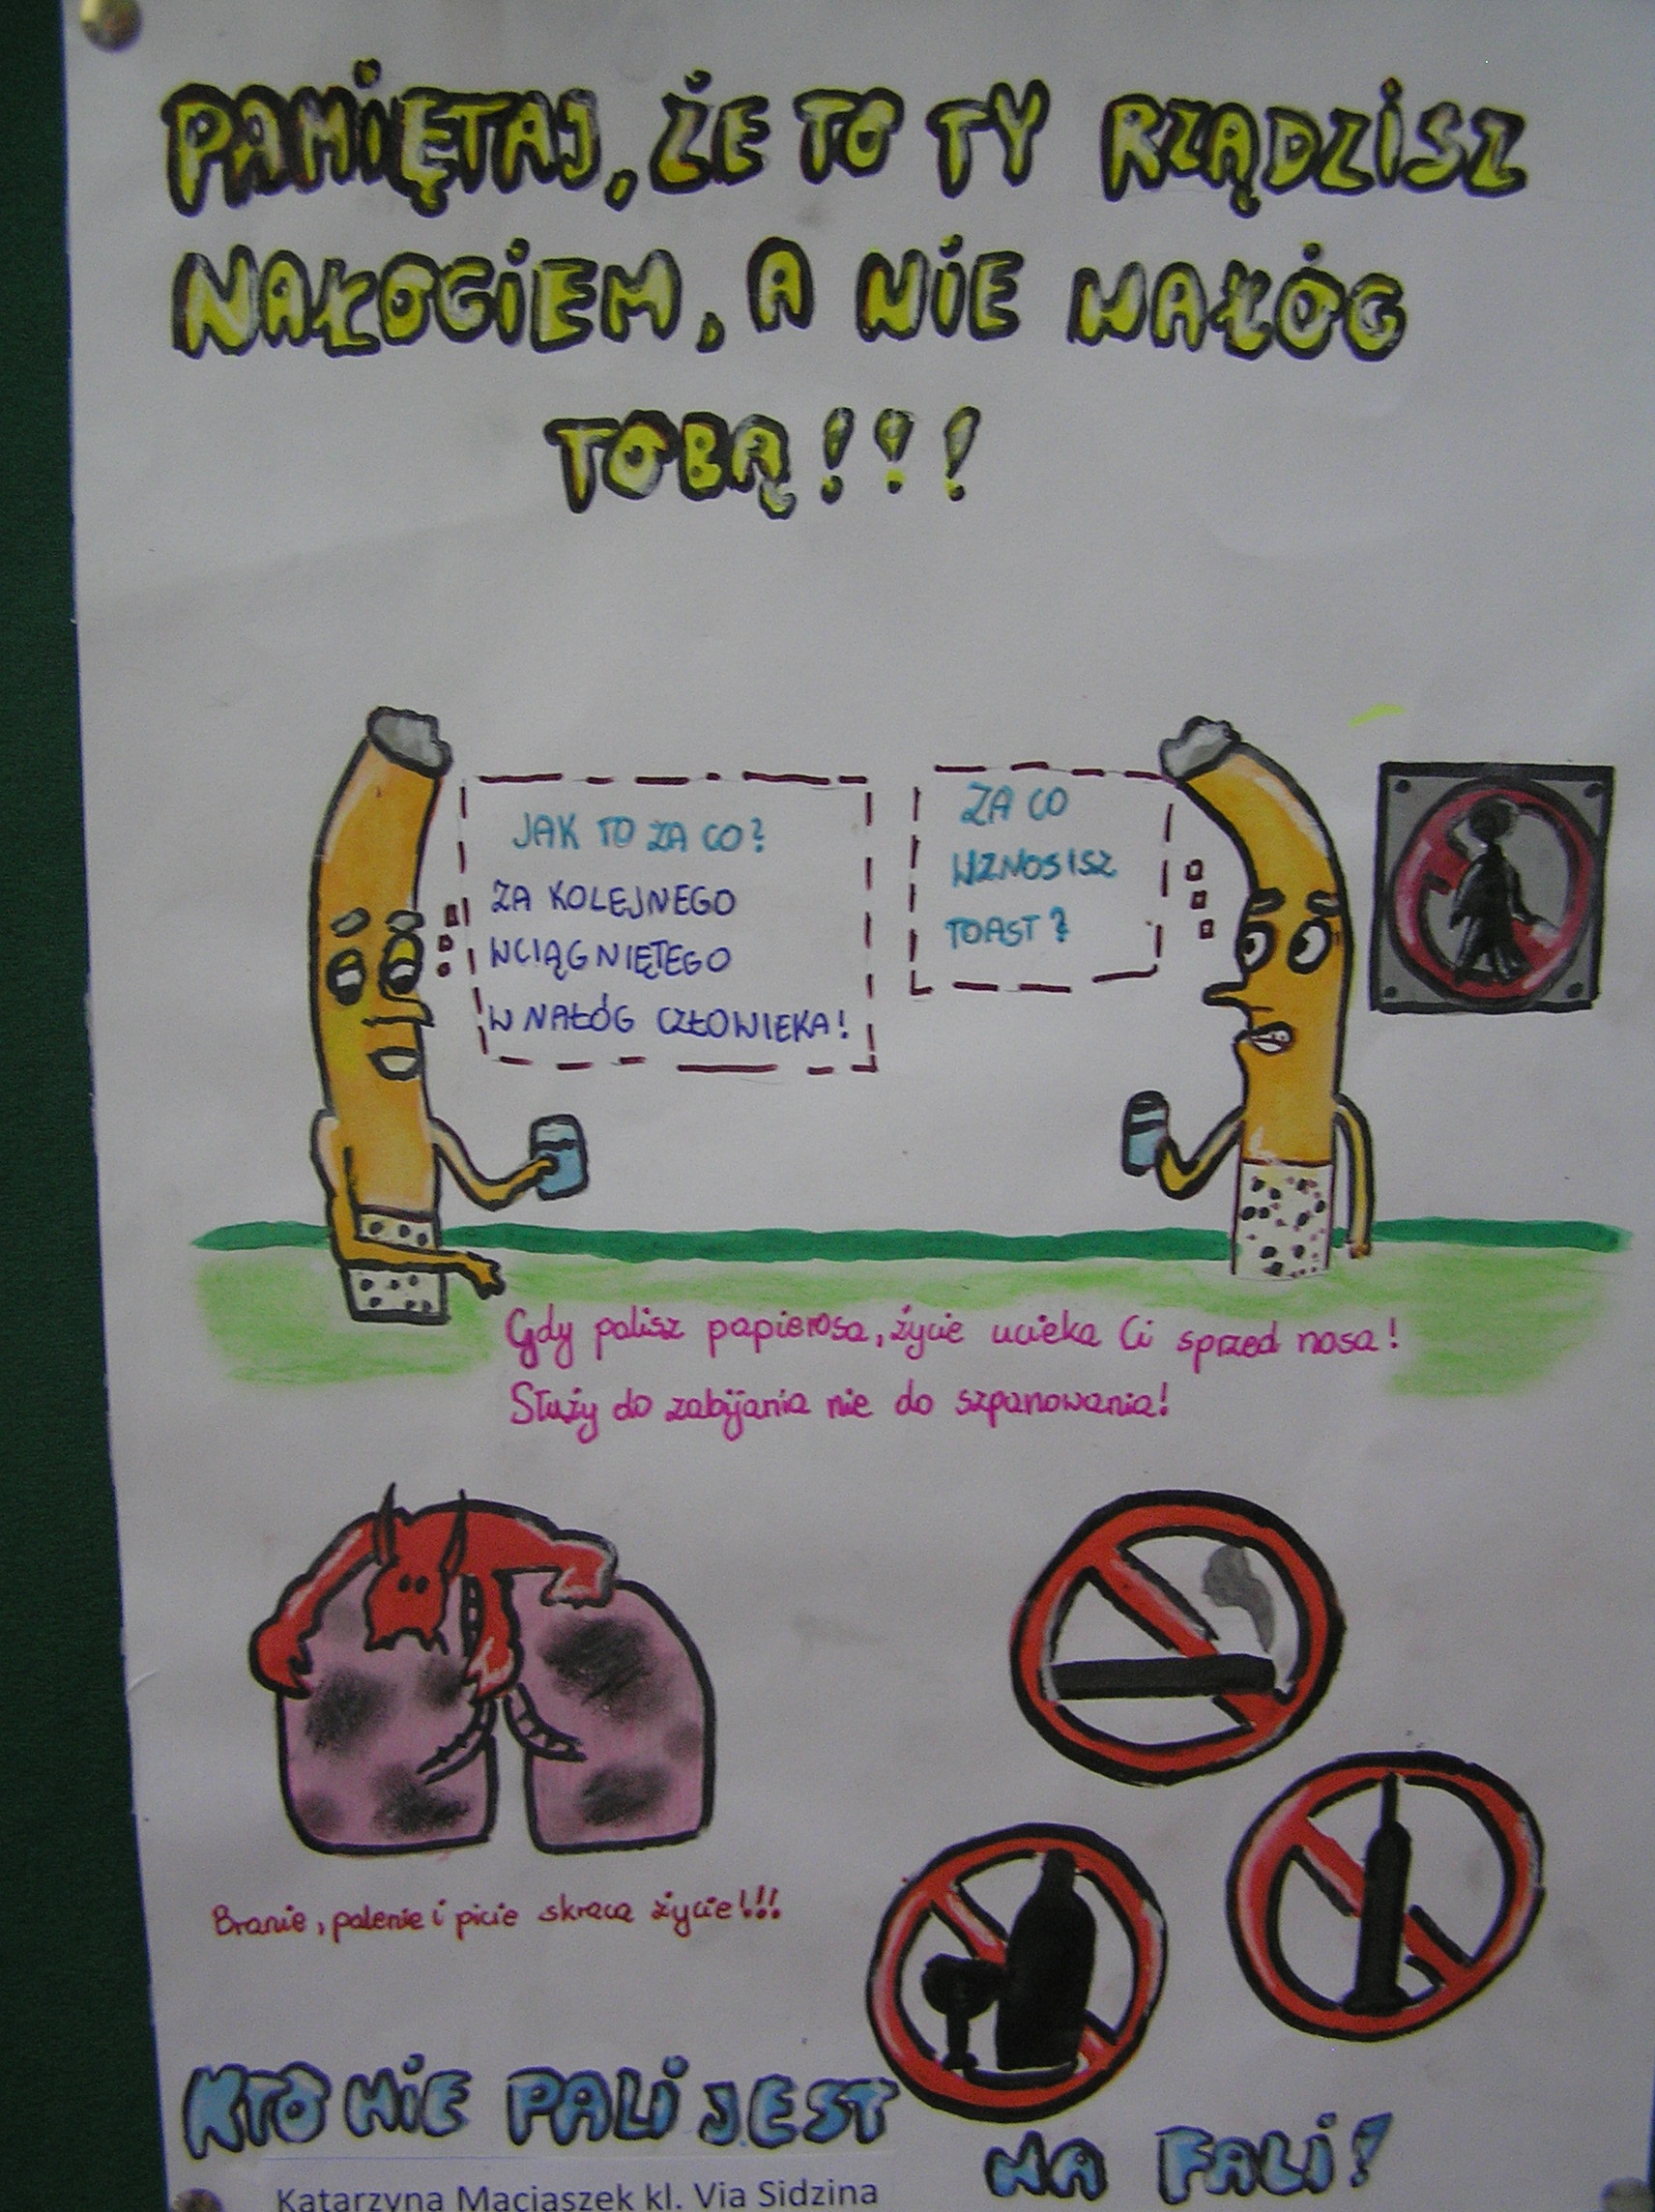 PAMIĘTAJ, ŻE TO TY RZĄDZISZ
NAŁOGIEM, A NIE NAŁÓG
TOBĄ!!!
JAK TO ZA CO?
ZA KOLEJNEGO
WCIĄGNIĘTEGO
W NAŁÓG CZŁOWIEKA!
ZA CO
WZNOSISZ
TOAST?
Gdy palisz papierosa, życie ucieka Ci sprzed nosa!
Służy do zabijania nie do szpanowania!
Branie, palenie i picie skraca życie!!!
KTO NIE PALI JEST
NA FALI!
Katarzyna Maciaszek kl. VIa Sidzina